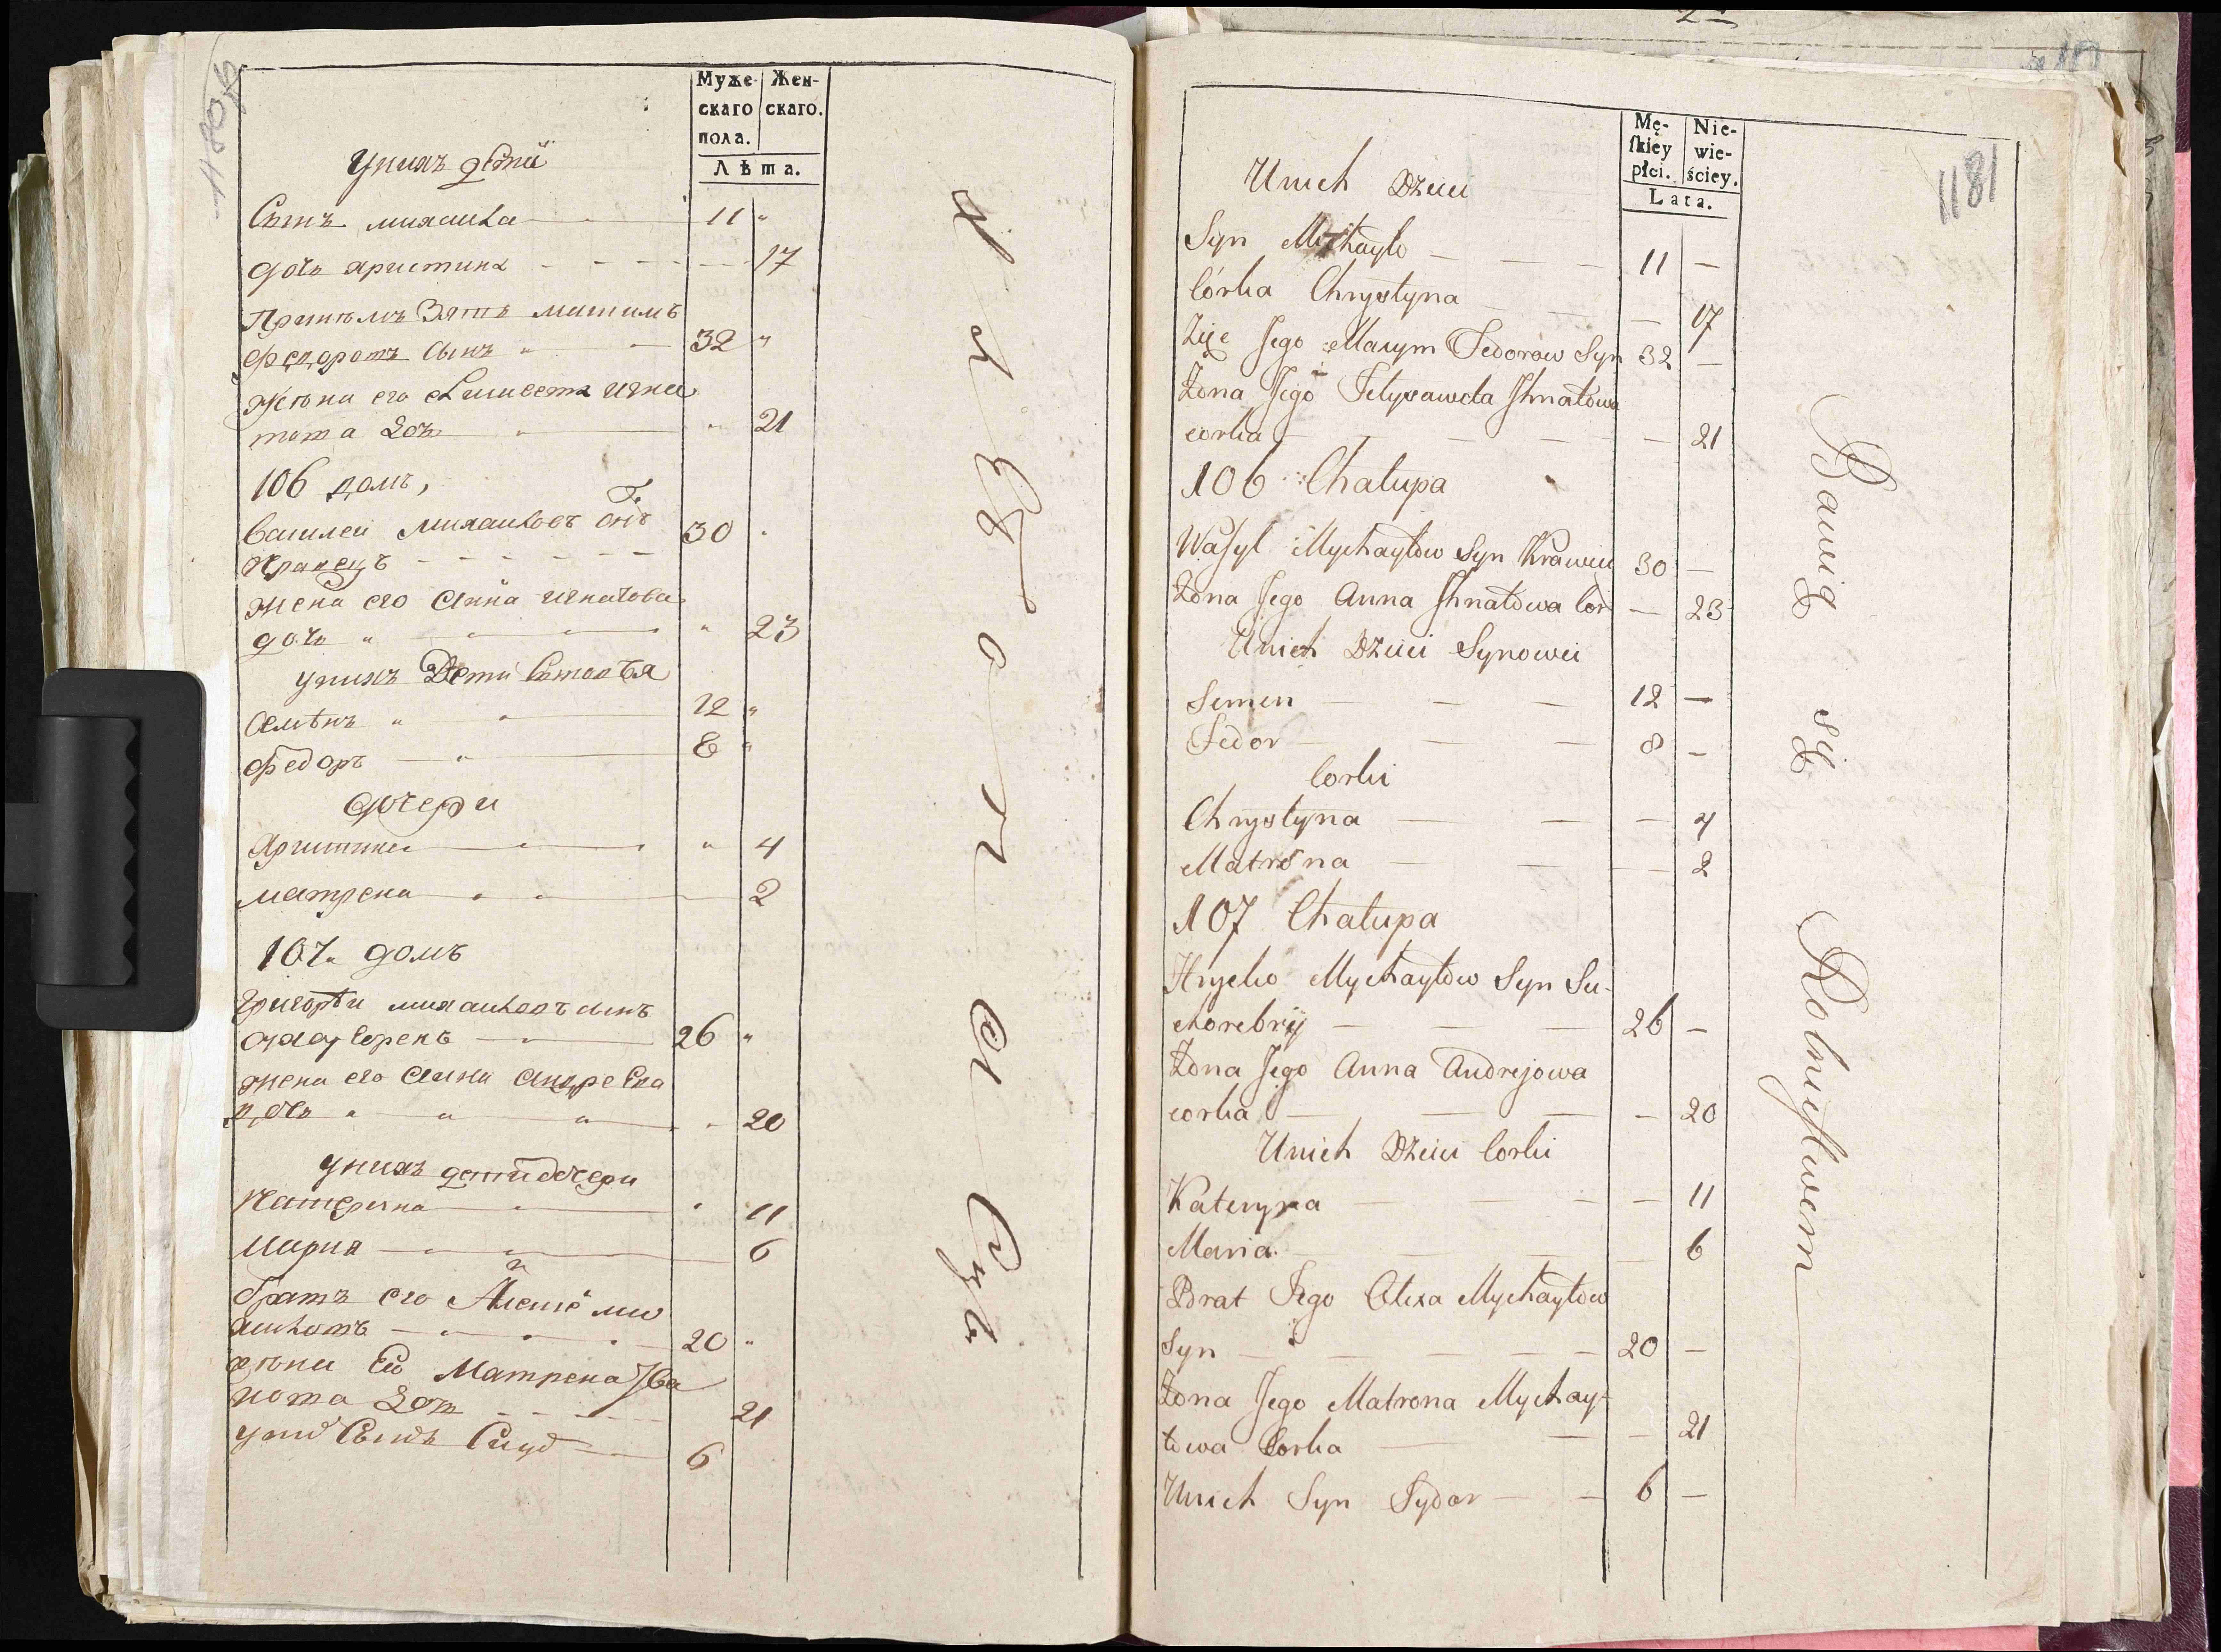 1180 об
Муже-
скаго
пола.
Жен-
скаго.
Лѣта.
Уних дѣти
Сынъ михайла 11 "
дочь христина 17
Зять максимъ
Федоровъ Сынъ 32 "
Жена его игна
това доч " 21
106 домъ,
Василей михайловъ Снъ
Кравецъ 30
жена его Анна игнатова
дочь " " 23
уних Дети Сыновья
Семѣнъ " 12 "
Федоръ 8 "
дочери
христина " 4
матрена 2
107 домъ
григорѣи михайловъ сынъ
26 "
жена его Анна Андреева
дочь " 20
уних дети дочери
Катерина " 11
Мария 6
братъ его Алексѣ ми
хайловъ 20 "
жена Ево Матрена
дочь 21
Сынъ Сидор 6
1181
Mę-
skiey
płci.
Nie-
wie-
ściey.
Lata.
Unich Dzieci
Syn Mychayło — 11 —
Córka Chrystyna — 17
Zięc Jego Maxym Fedorow Syn 32 —
Żona Jego Jelysaweta Ihnatowa
corka — 21
106 Chałupa
Wasyl Mychayłow Syn Krawiec 30 —
Żona Jego Anna Ihnatowa Cor — 23
Unich Dzieci Synowei
Semen — 12 —
Fedor — 8 —
Corki
Chrystyna — 4
Matrona — 2
107 Chałupa
Hryćko Mychayłow Syn Su-
chorebrij — 26 —
Żona Jego Anna Andrejowa
corka — 20
Unich Dzieci Corki
Kateryna — 11
Maria — 6
Brat Jego Olexa Mychayłow
Syn — 20 —
Żona Jego Matrona Mychay-
łowa Corka — 21
Unich Syn Sydor — 6 —
Bawią się Rolnictwem